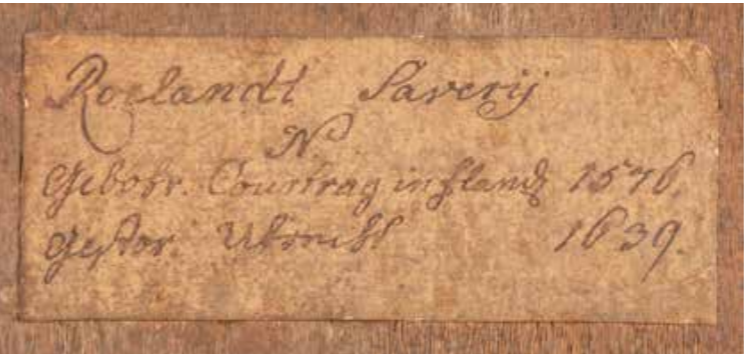 Roelandt Saverij
N.
Gebohr. Courtray in fland 1576.
Gestor. Utrecht 1639.